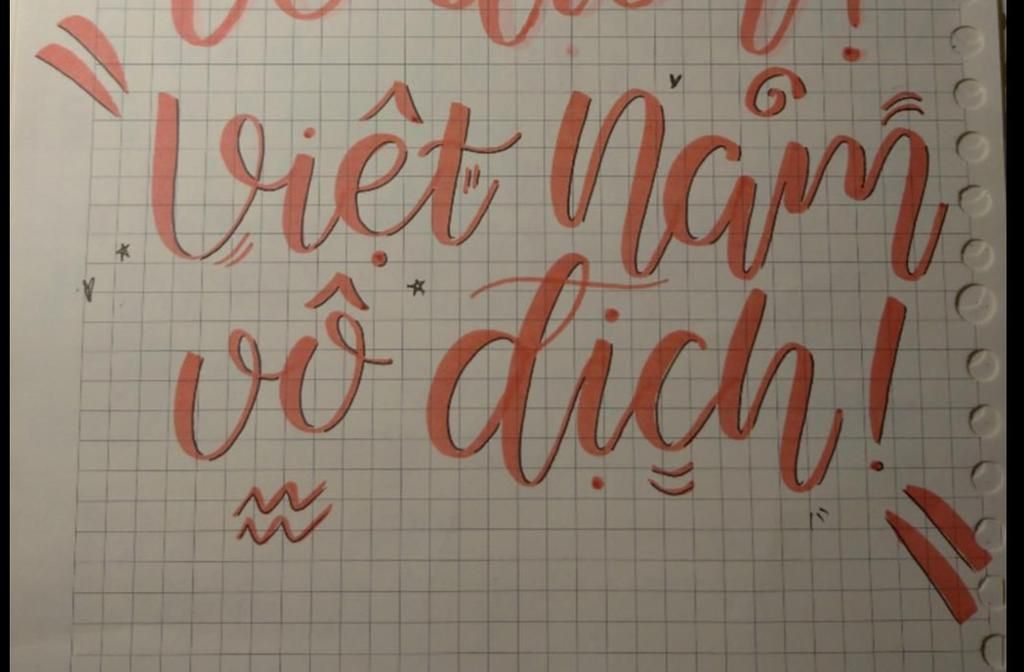 Việt Nam
vô địch!